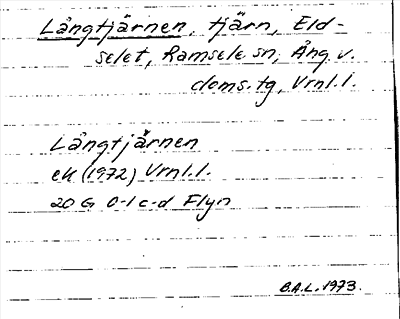 Långtjärnen, tjärn, Eld-
selet, Ramsele sn, Ång. v.
doms.tg, Vrnl.l.
Långtjärnen
ek (1972) Vrnl.l.
20 G 0-1 c-d Flyn
B.A.L. 1973.